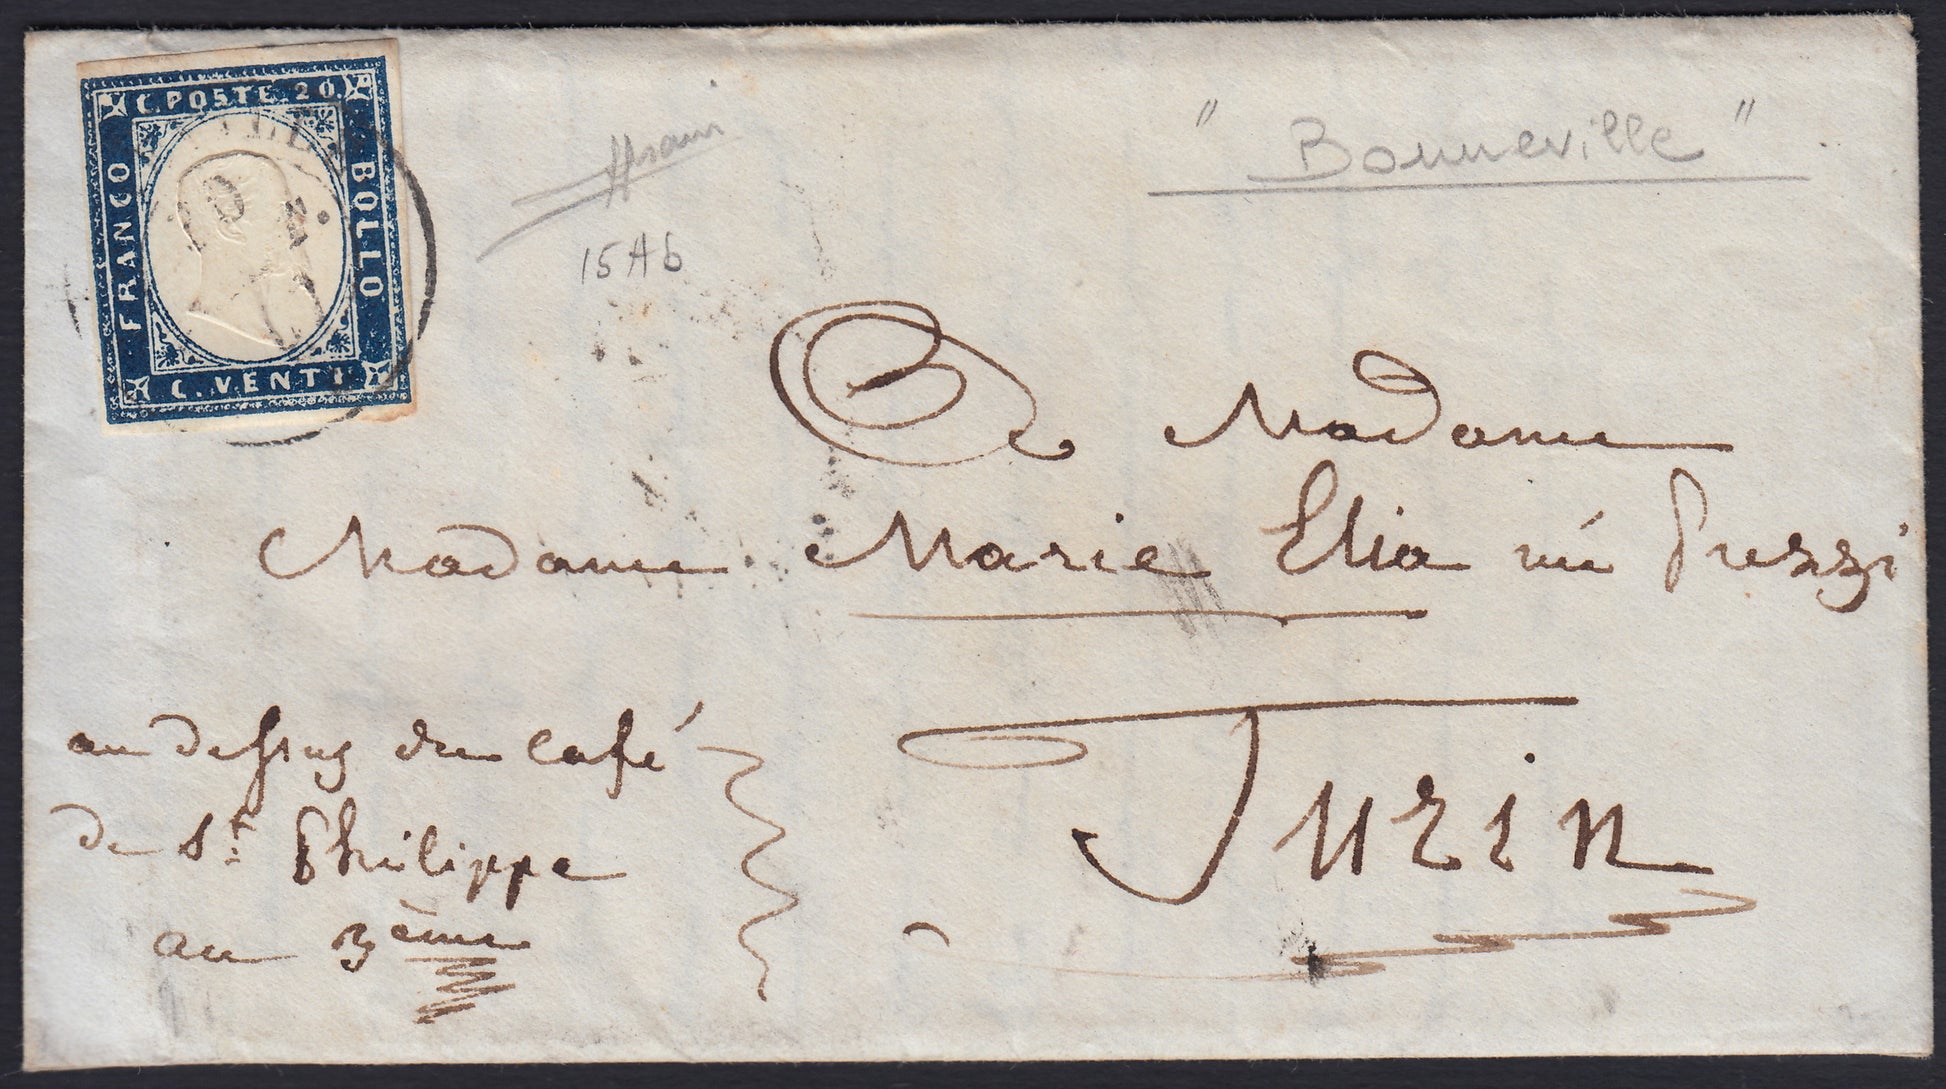 C. POSTE. 20.
FRANCO
BOLLO
C. VENTI
" Bonneville "
15Ab
A Madame
Madame Marie Elia née Prezzi
au dessus du café
de St. Philippe
au 3ème
Turin